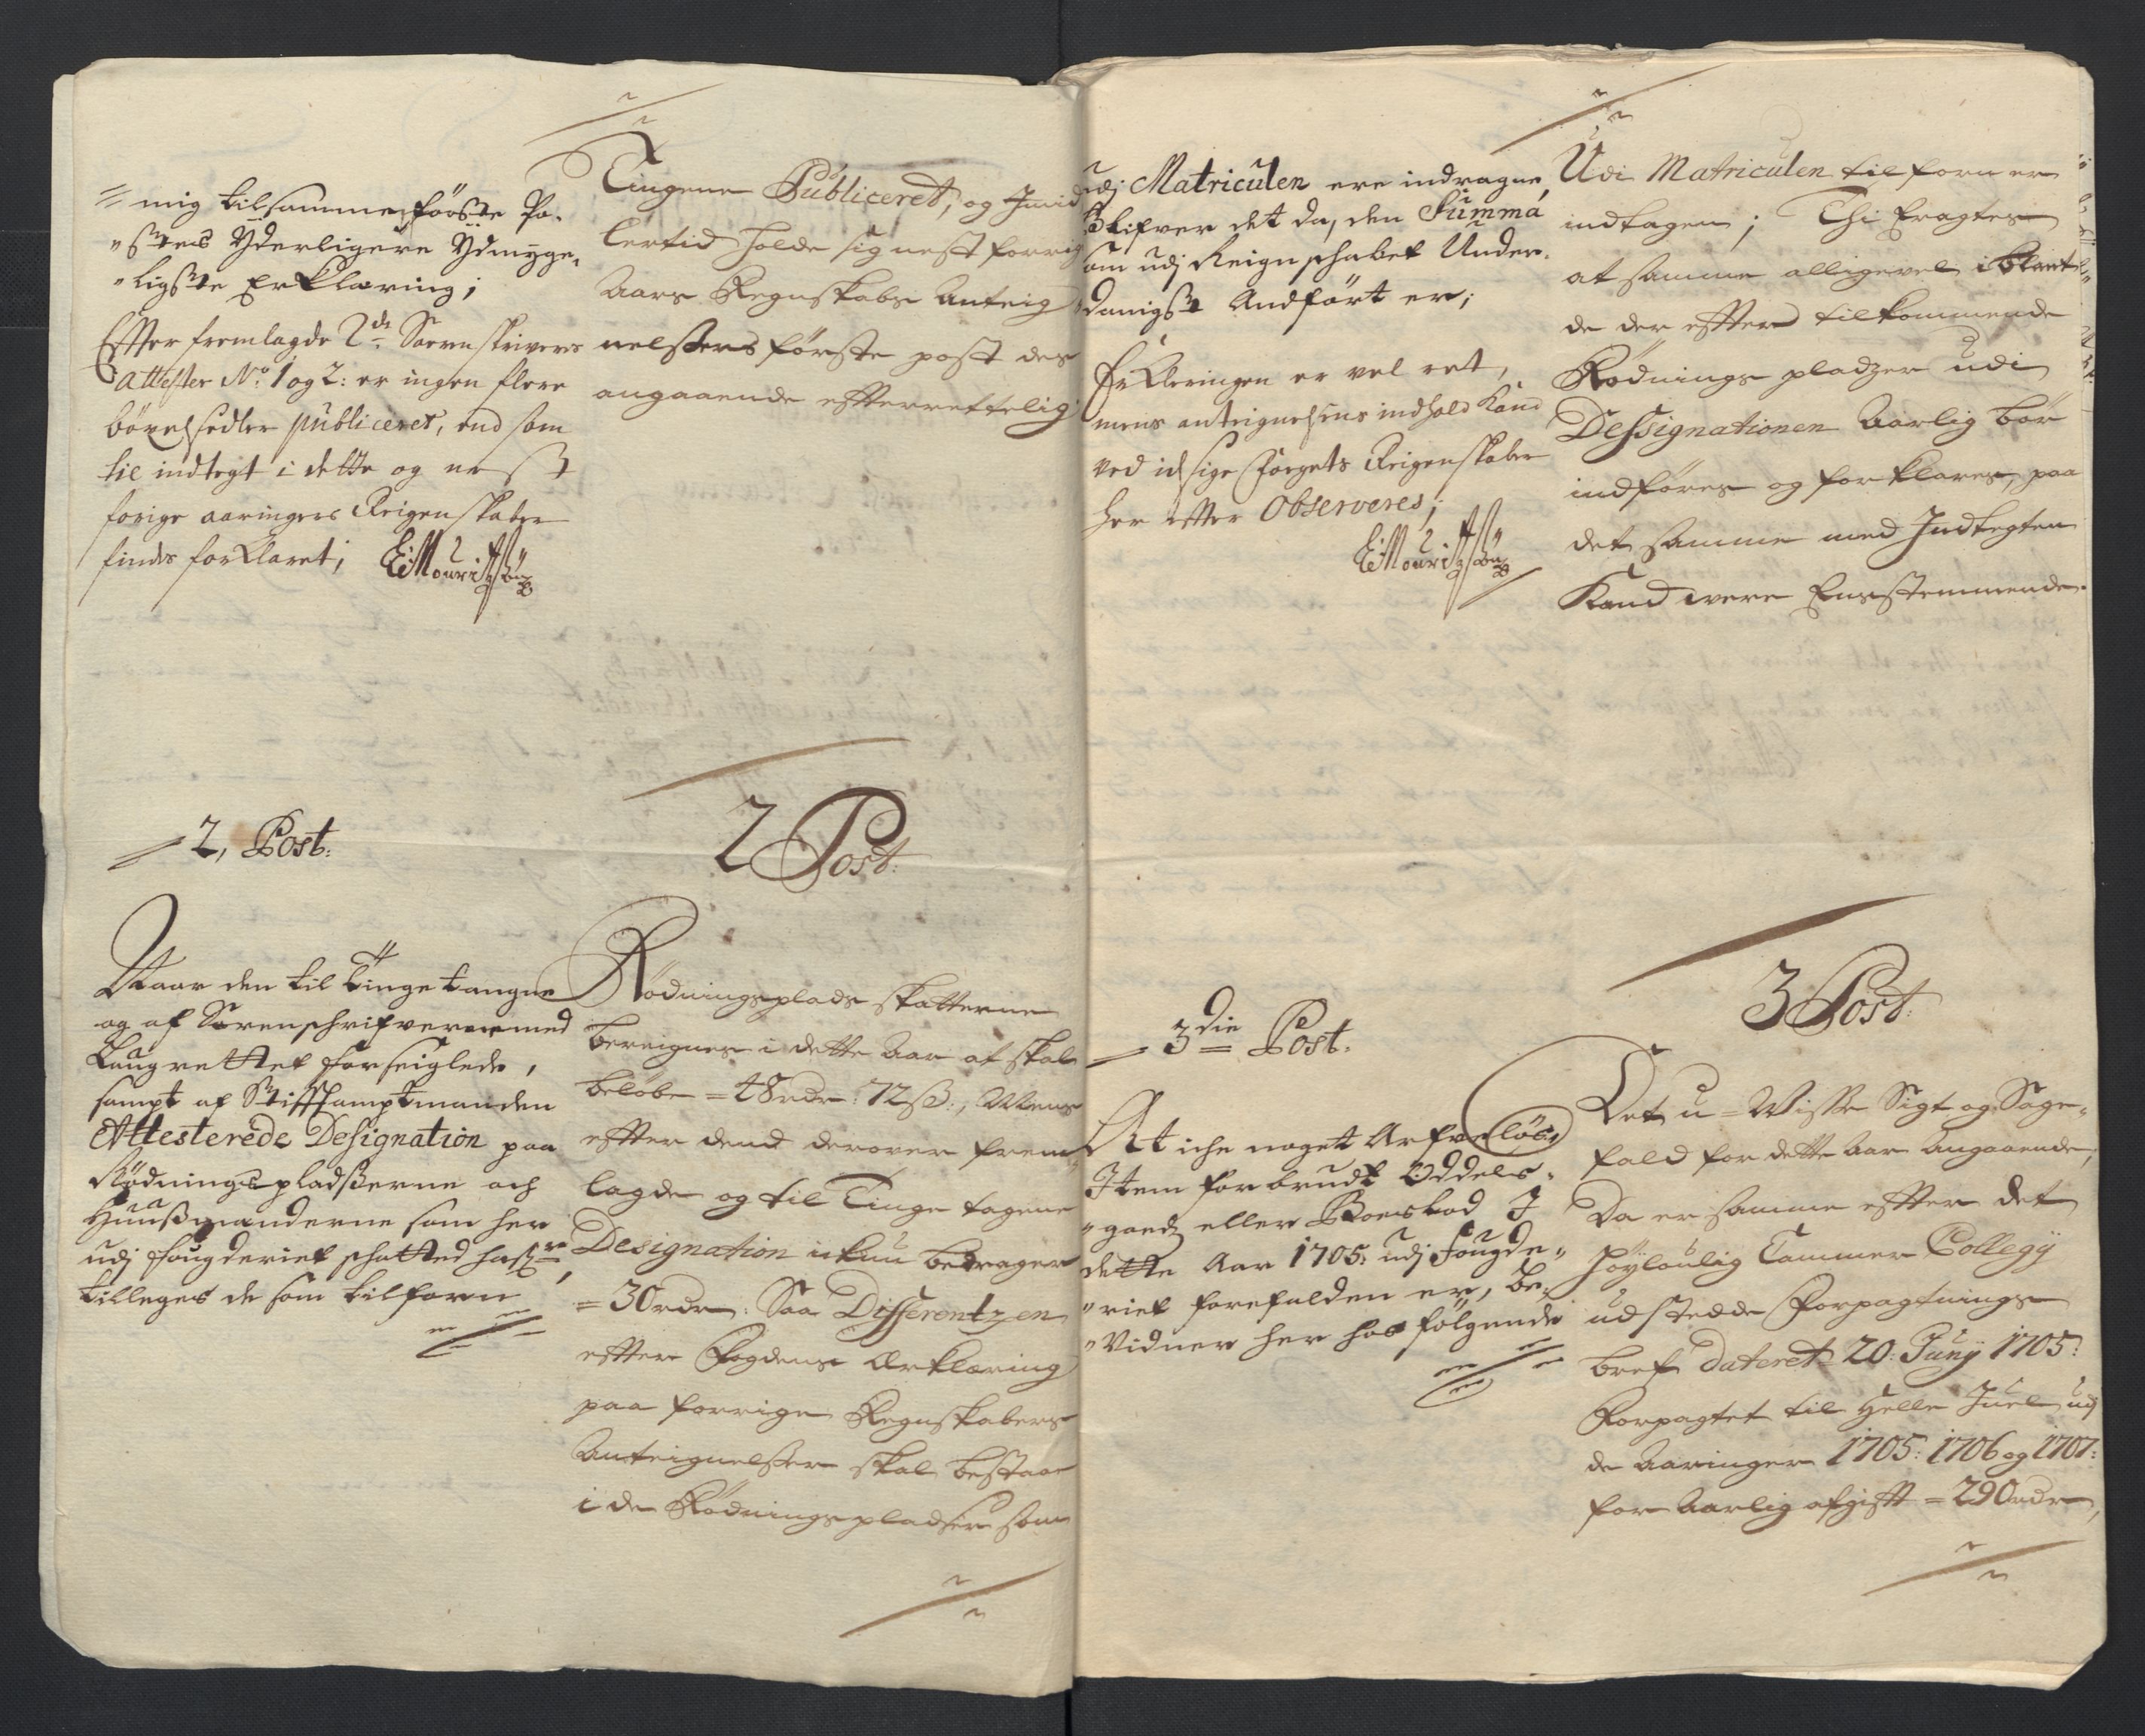 mig tilsammen første Po-
"stes Yderligere Ydmyge-
"ligste Erklæring;
Effter fremlagde 2de Sorenskrivers
Attester No. 1 og 2: er ingen flere
böxelsedler publiceret, end som
til indtegt i dette og nest
forige aaringers Reigenskaber
findes forklaret;
2, Post:
Naar den til tinge tangne
og af Sorenschrifveren med
Laugrettet forseiglede,
sampt af Stifftsamptmanden
Attesterede Designation paa
Rödningspladserne och
Huusmanderne som her
udj fougderiet schatted hafr
tilleges de som tilforn
Tingene Publiceret, og Imid
lertid holde sig nest forrig
Aars Regnskabs Anteig
nelsers første post des
angaaende efterrettelig
2 Post.
Rödningsplads skatterne
bereignes i dette Aar at skal
beløbe = 48 rdr: 72 ß:, Mens
effter dend derover frem-
lagde og til Tinge tagene
Designation ickun bedrager
= 30 rdr: Saa Differentzen
effter Fogdens Erklæring
paa forrige Regnskabers
Anteignelser skal bestaae
i de Rödningspladser som
udj Matriculen ere indragne,
Blifver det da, den Summa
som udj Reignschabet Under-
"danigst Andført er;
Erkleringen er vel ret,
mens anteignelsens indhold kand
ved
her effter Observeres;
3die Post.
At iche noget Arfveløs,
Item forbrudt Oddels-
"goedz eller Boeslod I
dette Aar 1705: udj Fougde-
"riet forefalden er, be-
"Vidner her hos følgende
Udi Matriculen tilforn er
indtagen; Thi Eragtes
at samme alligevel iblant
de der effter tilkommende
Rødnings pladzer udi
Dessignationen Aarlig bør
indføres og forklares, paa
det samme med Indtegten
Kand were Ensstemmende.
3 Post.
Det u-Wisse Sigt og Sage-
fald for dette Aar Angaaende,
Da er samme effter det
Höylovlig Cammer Collegy
udstedde Forpagtnings
bref dateret 20: Juny 1705:
Forpagtet til Helle Juel udj
de Aaringer 1705: 1706 og 1707:
for Aarlig afgifft = 290 rdr,